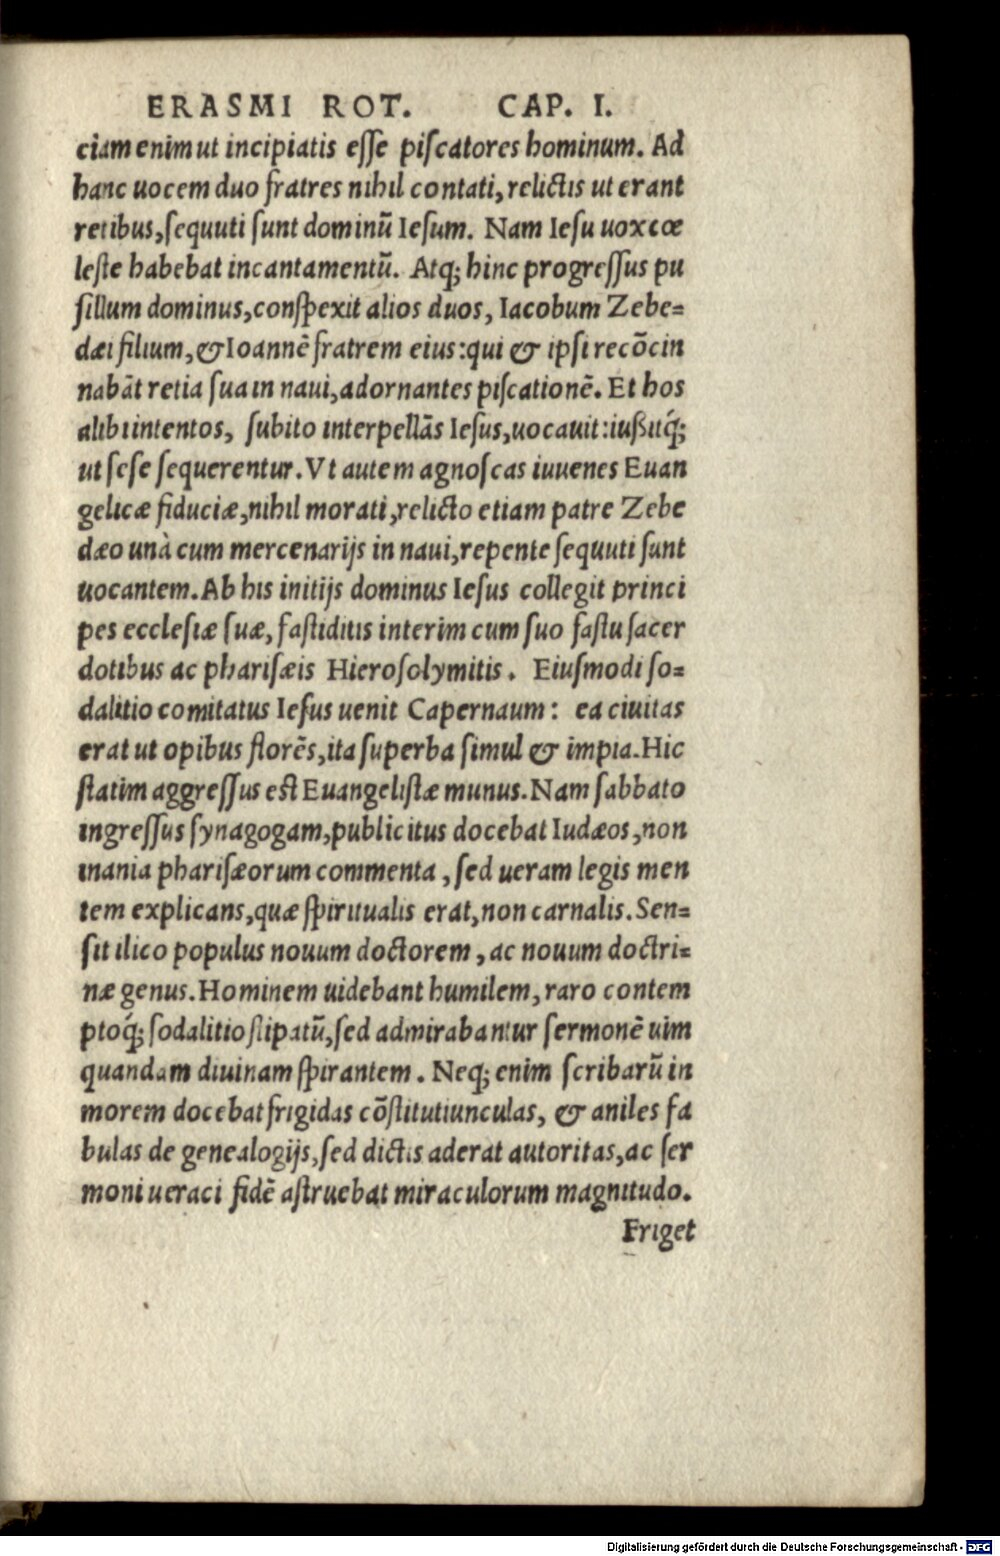 ERASMI ROT. CAP. I.
ciam enim ut incipiatis eſſe piſcatores hominum. Ad
hanc uocem duo fratres nihil contati, relictis ut erant
retibus, ſequuti ſunt dominū Ieſum. Nam Ieſu uox cœ
leſte habebat incantamentū. Atq; hinc progreſſus pu
ſillum dominus, conſpexit alios duos, Iacobum Zebe=
dæi filium, & Ioannē fratrem eius: qui & ipſi recōcin
nabāt retia ſua in naui, adornantes piſcationē. Et hos
alibi intentos, ſubito interpellās Ieſus, uocauit: iußitq́;
ut ſeſe ſequerentur. Vt autem agnoſcas iuuenes Euan
gelicæ fiduciæ, nihil morati, relicto etiam patre Zebe
dæo unà cum mercenarijs in naui, repente ſequuti ſunt
uocantem. Ab his initijs dominus Ieſus collegit princi
pes eccleſiæ ſuæ, faſtiditis interim cum ſuo faſtu ſacer
dotibus ac phariſæis Hieroſolymitis. Eiuſmodi ſo=
dalitio comitatus Ieſus uenit Capernaum: ea ciuitas
erat ut opibus florēs, ita ſuperba ſimul & impia. Hic
ſtatim aggreſſus eſt Euangeliſtæ munus. Nam ſabbato
ingreſſus ſynagogam, publicitus docebat Iudæos, non
inania phariſæorum commenta, ſed ueram legis men
tem explicans, quæ ſpiritualis erat, non carnalis. Sen=
ſit ilico populus nouum doctorem, ac nouum doctri=
næ genus. Hominem uidebant humilem, raro contem
ptoq́; ſodalitio ſtipatū, ſed admirabantur ſermonē uim
quandam diuinam ſpirantem. Neq; enim ſcribarū in
morem docebat frigidas cōſtitutiunculas, & aniles fa
bulas de genealogijs, ſed dictis aderat autoritas, ac ſer
moni ueraci fidē aſtruebat miraculorum magnitudo.
Friget
Digitalisierung gefördert durch die Deutsche Forschungsgemeinschaft - DFG